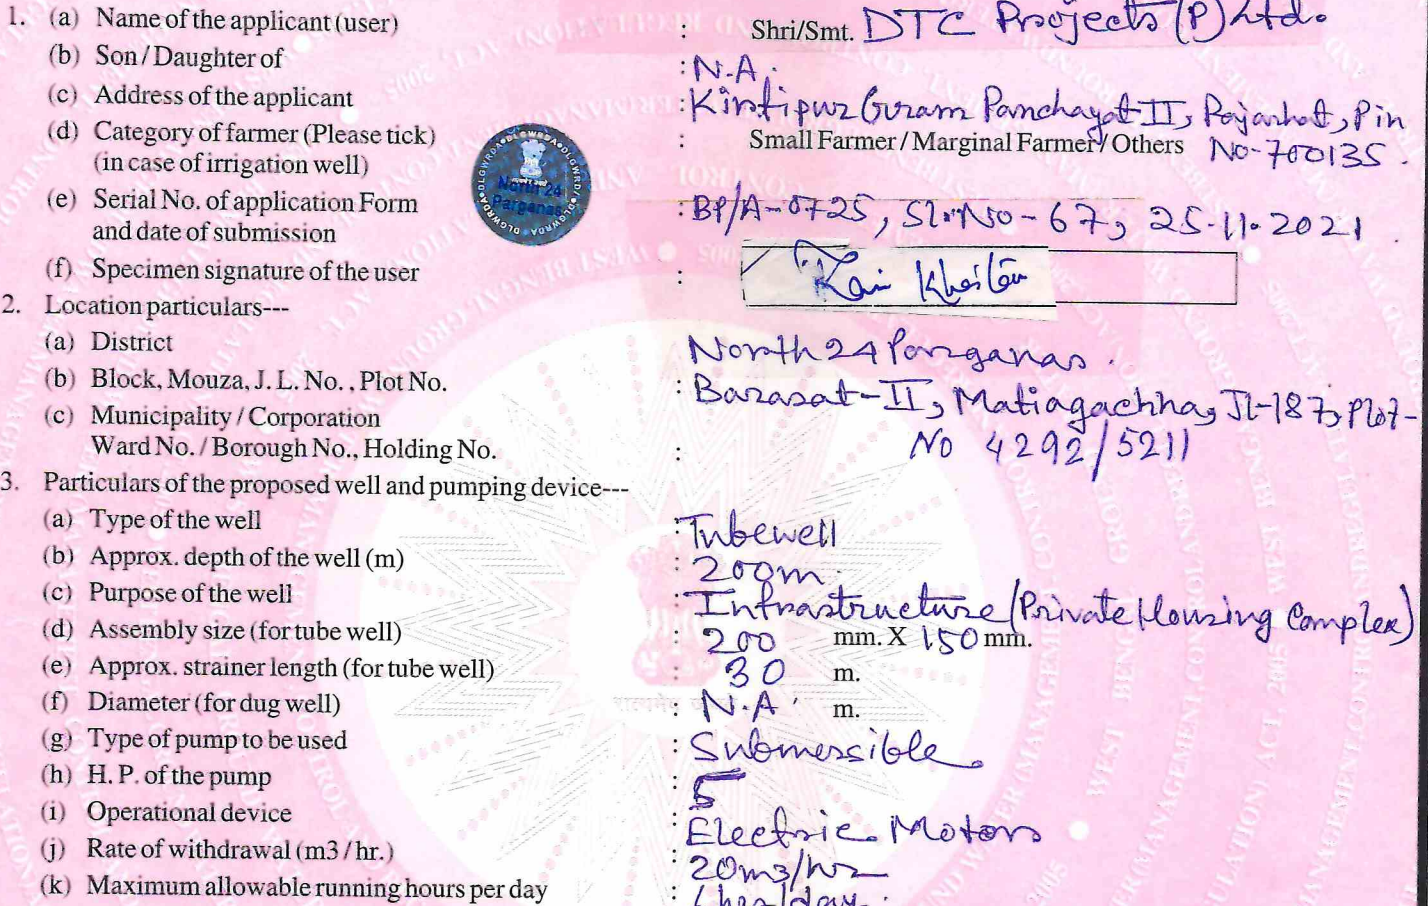 1. (a) Name of the applicant (user) : Shri/Smt. DTC Projects (P) Ltd.
(b) Son / Daughter of : N.A.
(c) Address of the applicant : Kirtipur Gram Panchayat II, Rajarhat, Pin
(d) Category of farmer (Please tick) : Small Farmer / Marginal Farmer / Others No-700135.
(in case of irrigation well)
North 24
Parganas
(e) Serial No. of application Form : BP/A-0725, Sl. No - 67, 25.11.2021
and date of submission
(f) Specimen signature of the user :
2. Location particulars---
(a) District North 24 Parganas.
(b) Block, Mouza, J. L. No. , Plot No. : Barasat-II, Matiagachha, Jl-187, Plot-
(c) Municipality / Corporation No 4292/5211
Ward No. / Borough No., Holding No. :
3. Particulars of the proposed well and pumping device---
(a) Type of the well : Tubewell
(b) Approx. depth of the well (m) : 200m.
(c) Purpose of the well : Infrastructure (Private Housing Complex)
(d) Assembly size (for tube well) : 200 mm. X 150 mm.
(e) Approx. strainer length (for tube well) : 30 m.
(f) Diameter (for dug well) : N.A m.
(g) Type of pump to be used : Submessible.
(h) H. P. of the pump : 5
(i) Operational device : Electric Motors
(j) Rate of withdrawal (m3 / hr.) : 20m3/hr
(k) Maximum allowable running hours per day : hrs/day.